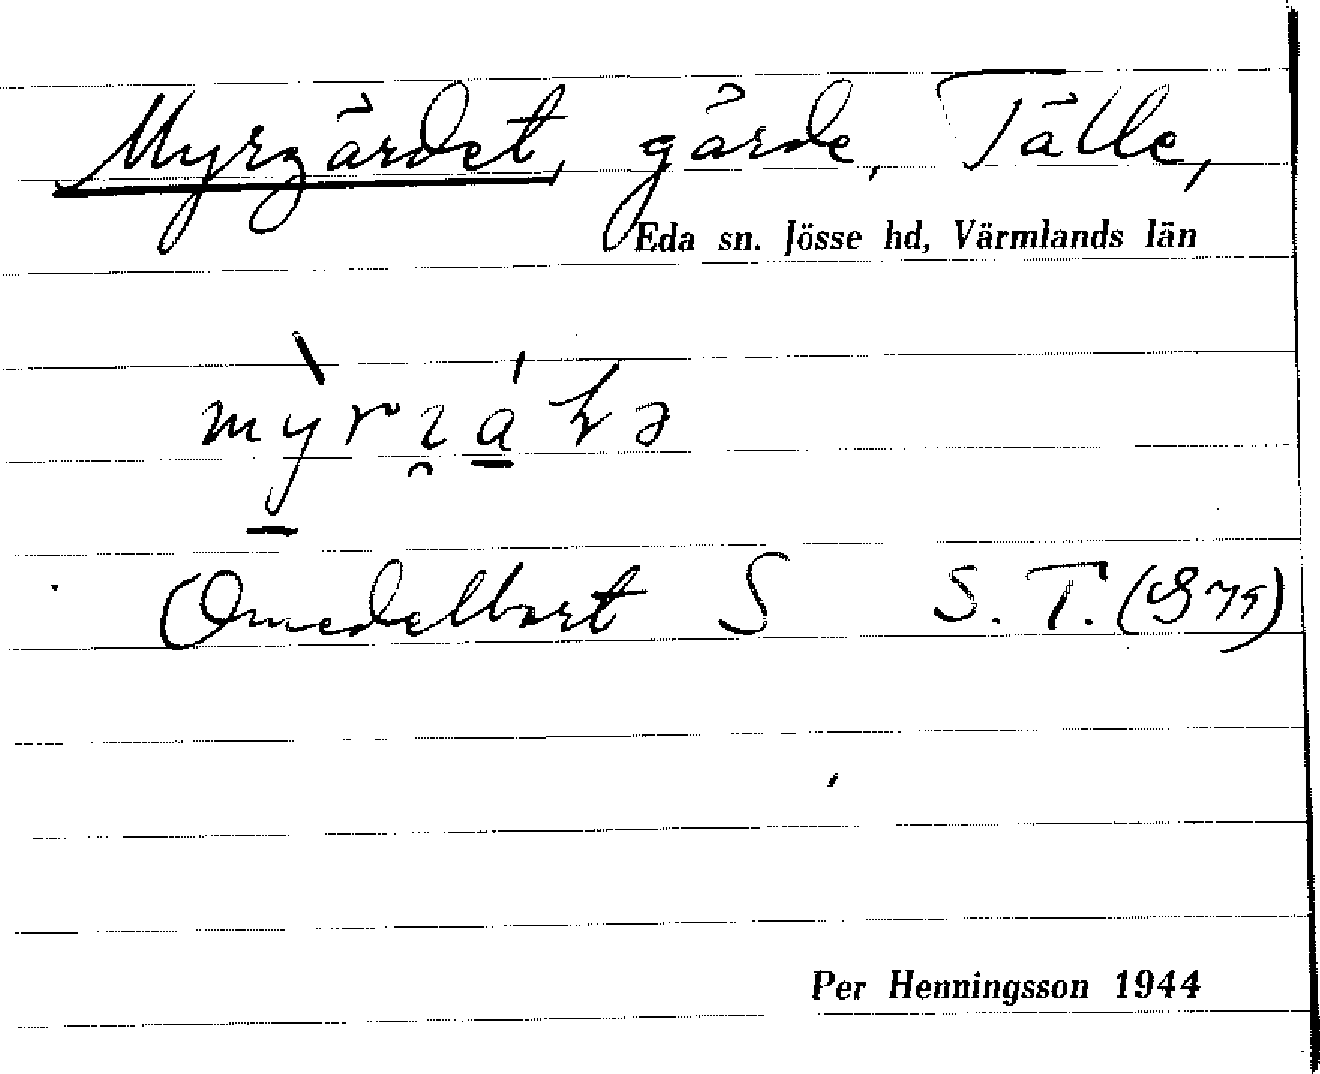 Myrgärdet, gärde, Tälle,
Eda sn. Jösse hd, Värmlands län
Omedelbart S S. T.
Per Henningsson 1944